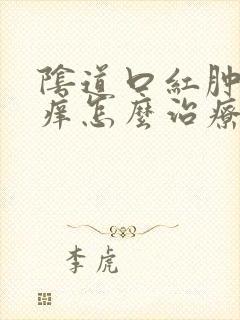 陰道口紅肿
痒怎麼治療
李虎